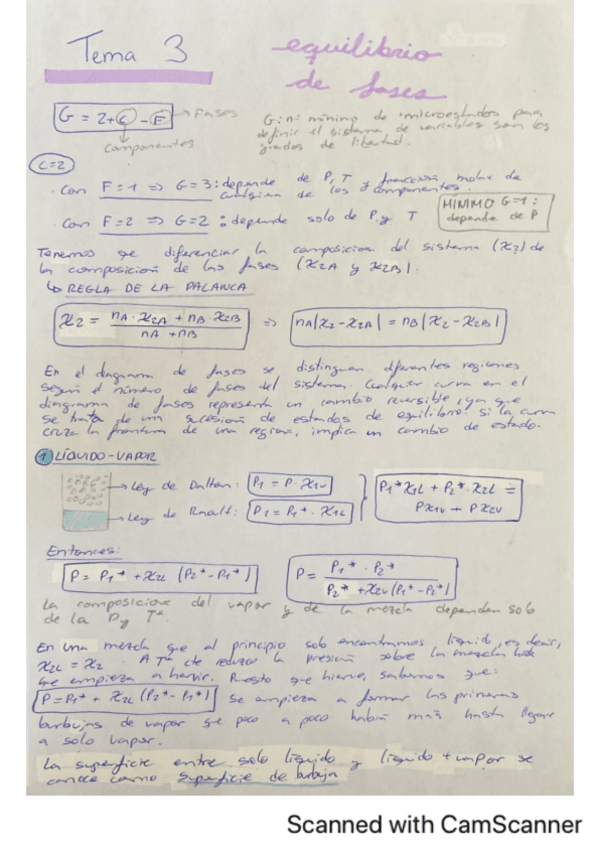 Tema 3 equilibrio
de fases
G = 2+C-F → Fases
Componentes
G: nº mínimo de microestados para
definir el sistema de variables son los
grados de libertad.
C=2
· Con F=1 => G=3: depende de P, T y fracción molar de
cualquiera de los 2 componentes.
· Con F=2 => G=2: depende solo de P y T
MÍNIMO G=1:
depende de P
Tenemos que diferenciar la composición del sistema (x2) de
la composición de las fases (x2A y x2B).
↳ REGLA DE LA PALANCA
x2 = (nA·x2A + nB·x2B) / (nA + nB) => nA|x2-x2A| = nB|x2-x2B|
En el diagrama de fases se distinguen diferentes regiones
según el número de fases del sistema. Cualquier curva en el
diagrama de fases representa un cambio reversible, ya que
se trata de una sucesión de estados de equilibrio. Si la curva
cruza la frontera de una región, implica un cambio de estado.
1 LÍQUIDO-VAPOR
→ Ley de Dalton: P1 = P·x1V
→ Ley de Raoult: P1 = P1*·x1L
P1*x1L + P2*·x2L =
Px1V + Px2V
Entonces:
P = P1* + x2L (P2*-P1*)
P = P1*·P2* / (P2*+x2V(P1*-P2*))
La composición del vapor y de la mezcla dependen solo
de la P y Tª
En una mezcla que al principio solo encontramos líquido, es decir,
x2L = x2. A Tª cte reduzco la presión sobre la mezcla hasta
que empieza a hervir. Puesto que hierve, sabemos que:
P=P1*+ x2L (P2*-P1*) Se empieza a formar las primeras
burbujas de vapor que poco a poco habrá más hasta llegar
a solo vapor.
La superficie entre solo líquido y líquido + vapor se
conoce como superficie de burbuja
Scanned with CamScanner